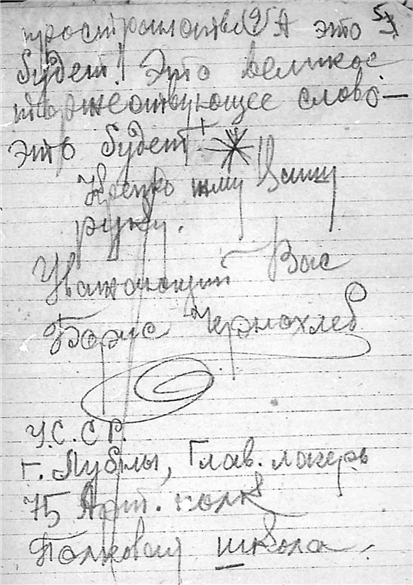 пространство(?) А это 5
будет! Это великое
торжествующее слово —
это будет
Крепко жму Вашу
руку.
Уважающий Вас
Борис Чернохлеб
У.С.С.Р.
г. Лубны, Глав. лагерь
75 Арт. полк
Полковая школа.